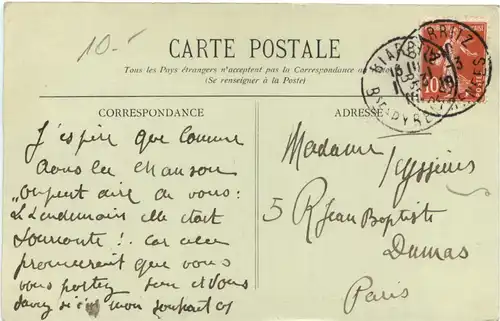 10.-
CARTE POSTALE
Tous les Pays étrangers n'acceptent pas la Correspondance au
(Se renseigner à la Poste)
CORRESPONDANCE
ADRESSE
BIARRITZ
Bses PYRENEES
10
J'espère que comme
dans la chanson
"On peut dire de vous:
Le lendemain elle était
souriante! Car cela
prouverait que vous
vous portez bien et vous
savez si c'est mon souhait
Madame
5 R Jean Baptiste
Dumas
Paris